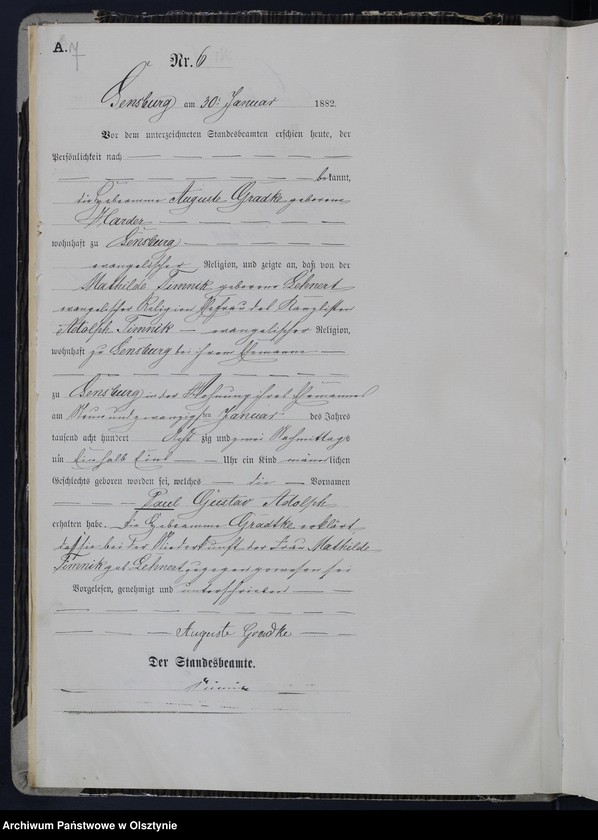 A. 7
Nr. 6
Sensburg am 30. Januar 1882.
Vor dem unterzeichneten Standesbeamten erschien heute, der
Persönlichkeit nach
bekannt,
die Hebeamme Auguste Gradke geborene
Harder
wohnhaft zu Sensburg
evangelischer Religion, und zeigte an, daß von der
Mathilde Timnik geborene Lehnert
evangelischer Religion Ehefrau des Kanzlisten
Adolph Timnik evangelischer Religion,
wohnhaft zu Sensburg bei ihrem Ehemanne
zu Sensburg in der Wohnung ihres Ehemannes
am Neunundzwanzigsten Januar des Jahres
tausend acht hundert Acht zig und zwei Nachmittags
um Einhalb Eins Uhr ein Kind männlichen
Geschlechts geboren worden sei, welches die Vornamen
Paul Gustav Adolph
erhalten habe. Die Hebeamme Gradtke erklärt,
daß sie bei der Niederkunft der Frau Mathilde
Timnik geb Lehnert zugegen gewesen sei
Vorgelesen, genehmigt und unterschrieben
Auguste Gradke
Der Standesbeamte.
Archiwum Państwowe w Olsztynie